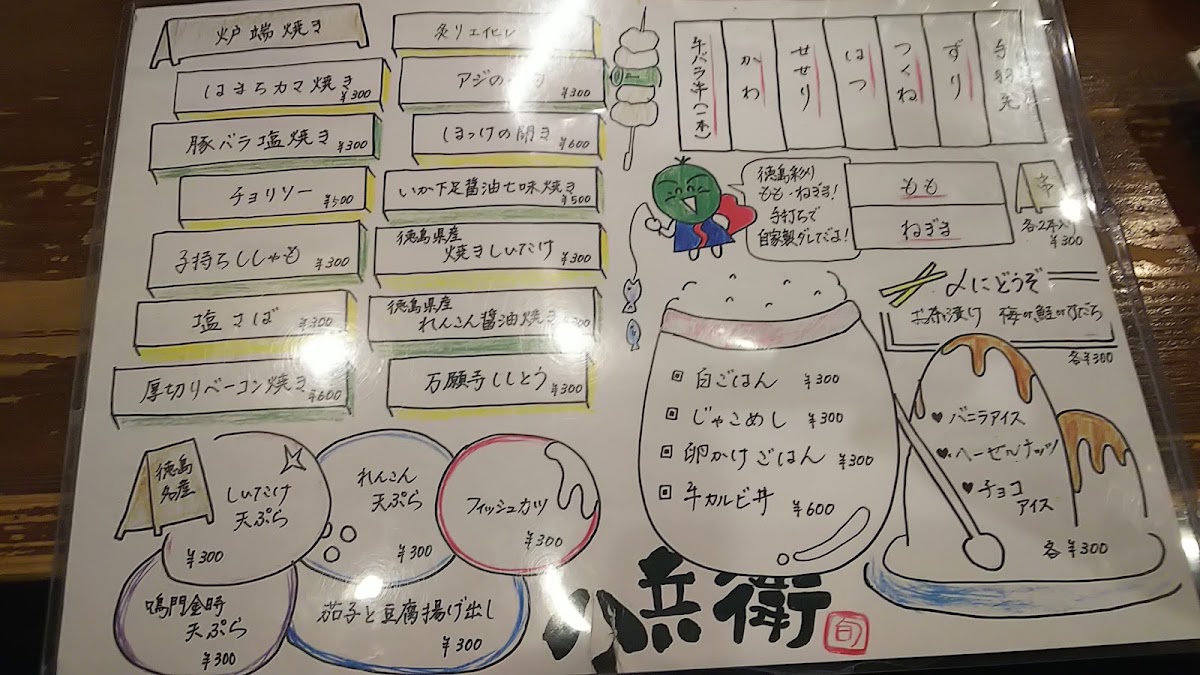 炉端焼き
はまちカマ焼き ¥300
豚バラ塩焼き ¥300
チョリソー ¥500
子持ちししゃも ¥300
塩さば ¥300
厚切りベーコン焼き ¥600
炙りエイヒレ
アジの
¥300
ほっけの開き ¥600
いか下足醤油七味焼き ¥500
徳島県産
焼きしいたけ ¥300
徳島県産
れんこん醤油焼き
万願寺ししとう ¥300
手羽先
ずり
つくね
はつ
せせり
かわ
牛バラ串(一本)
徳島彩り
もも・ねぎま!
手打ちで
自家製ダレだよ!
もも
ねぎま
串
各2本入り
¥300
〆にどうぞ
お茶漬け 梅or鮭orすだち
各¥300
白ごはん ¥300
じゃこめし ¥300
卵かけごはん ¥300
牛カルビ丼 ¥600
バニラアイス
ヘーゼルナッツ
チョコ
アイス
各¥300
徳島
名産
しいたけ
天ぷら
¥300
れんこん
天ぷら
¥300
フィッシュカツ
¥300
鳴門金時
天ぷら
¥300
茄子と豆腐揚げ出し
¥300
八兵衛
旬